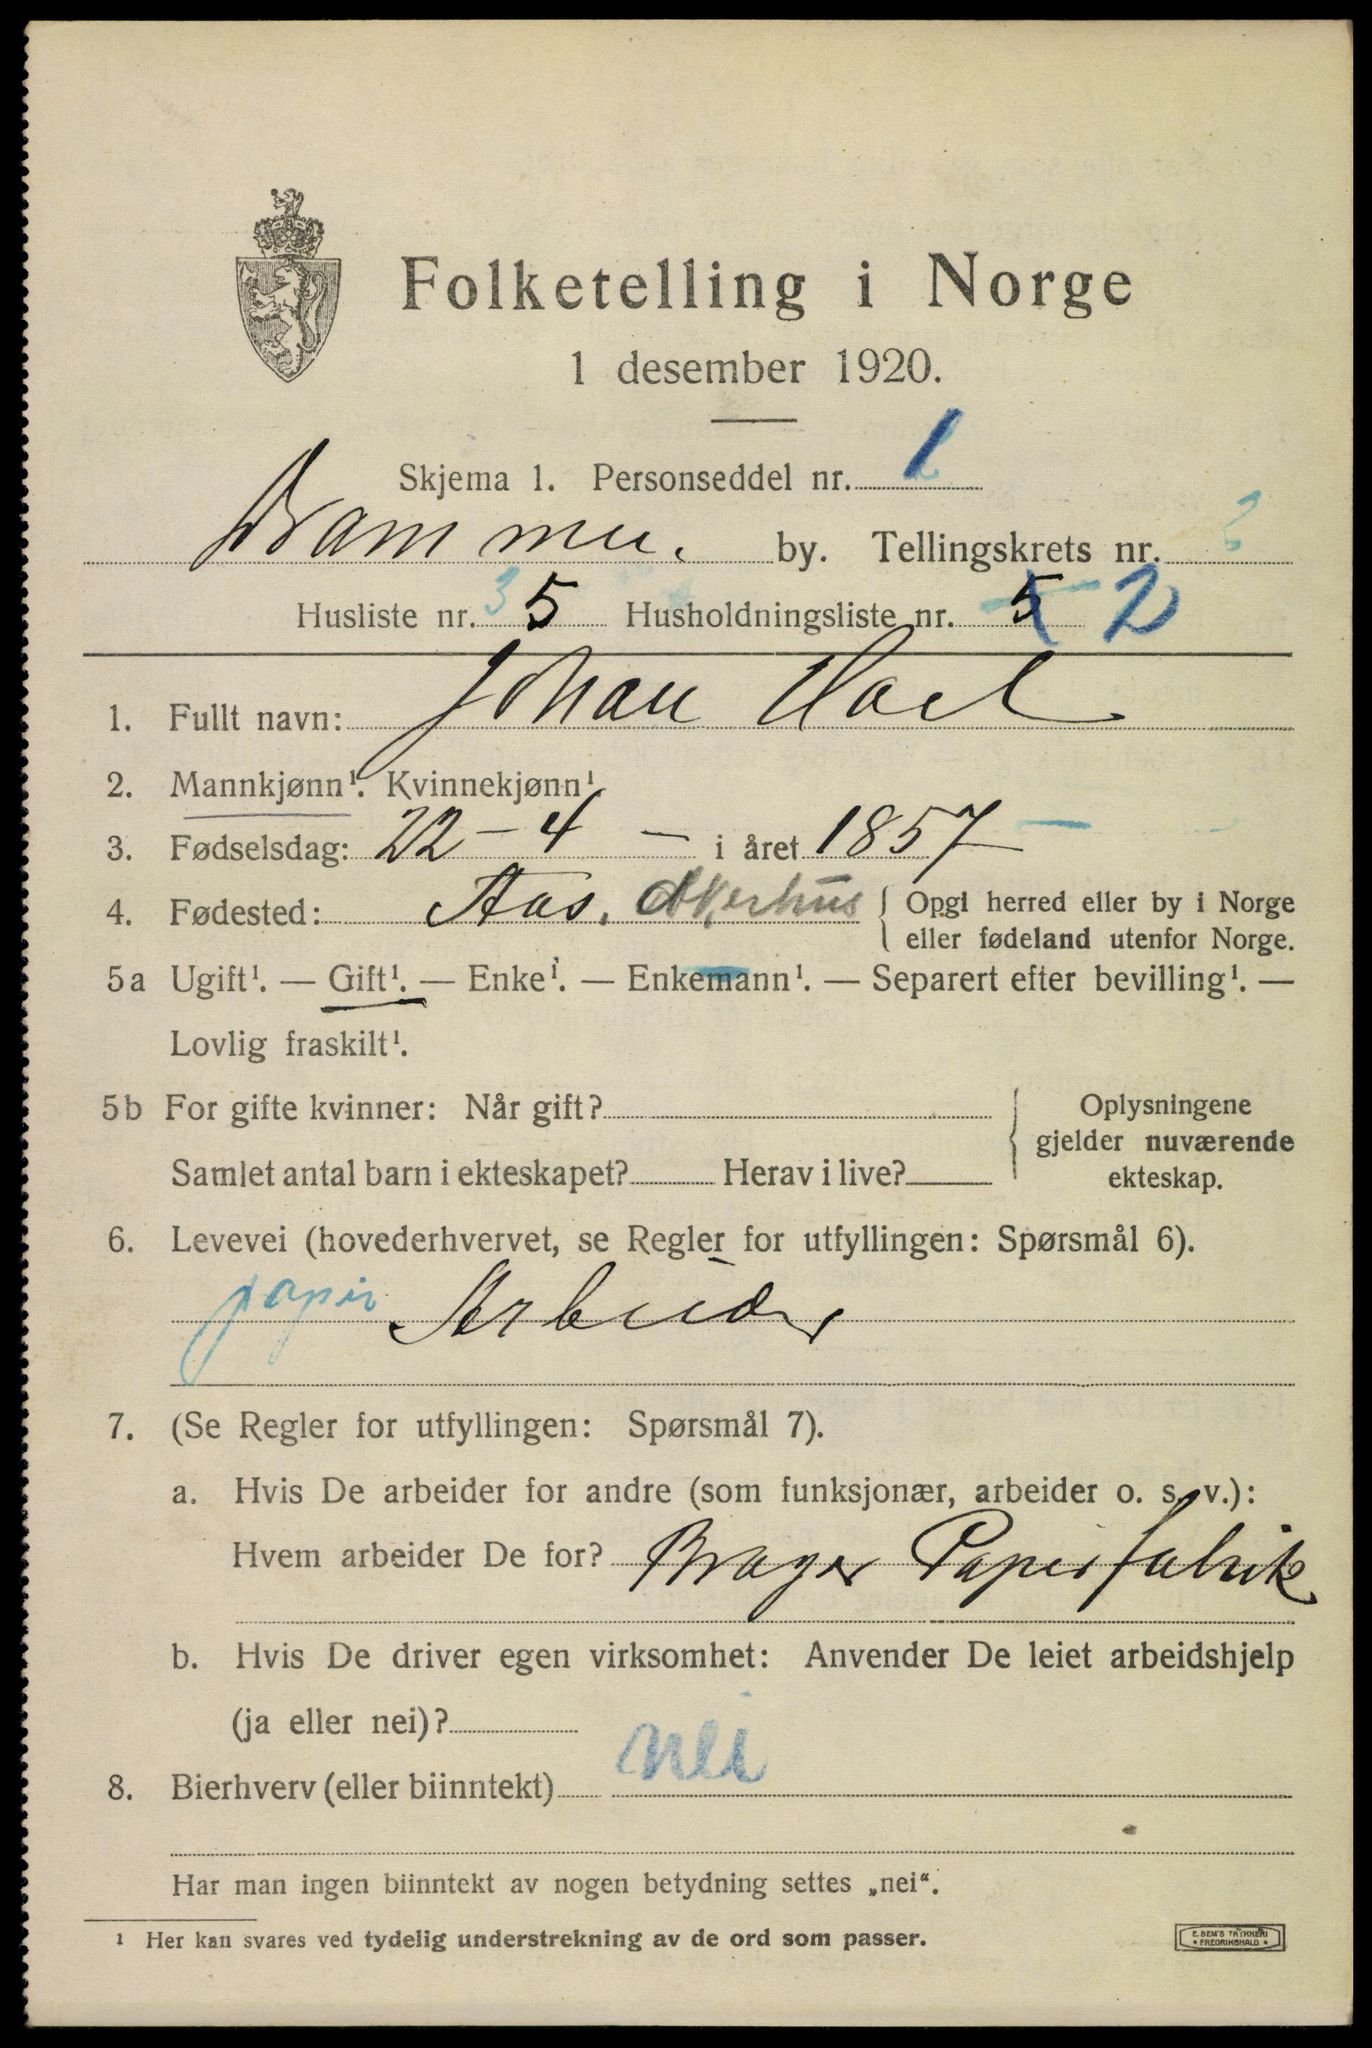 Folketelling i Norge
1 desember 1920.
Skjema 1. Personseddel nr. 1
Drammen. by. Tellingskrets nr. 2
Husliste nr. 3 5 Husholdningsliste nr. 5 2
1. Fullt navn: Johan Hoel
2. Mannkjønn¹. Kvinnekjønn¹.
3. Fødselsdag: 22 - 4 - i året 1857
4. Fødested: Aas. Akerhus { Opgi herred eller by i Norge
eller fødeland utenfor Norge.
5a Ugift¹. — Gift¹. — Enke¹. — Enkemann¹. — Separert efter bevilling¹. —
Lovlig fraskilt¹.
5b For gifte kvinner: Når gift? { Oplysningene
gjelder nuværende
Samlet antal barn i ekteskapet? Herav i live? ekteskap.
6. Levevei (hovederhvervet, se Regler for utfyllingen: Spørsmål 6).
papir Arbeider
7. (Se Regler for utfyllingen: Spørsmål 7).
a. Hvis De arbeider for andre (som funksjonær, arbeider o. s. v.):
Hvem arbeider De for? Brager Papirfabrik
b. Hvis De driver egen virksomhet: Anvender De leiet arbeidshjelp
(ja eller nei)?
8. Bierhverv (eller biinntekt) nei
Har man ingen biinntekt av nogen betydning settes „nei“.
¹ Her kan svares ved tydelig understrekning av de ord som passer.
E. SEM'S TRYKKERI
* FREDRIKSHALD *